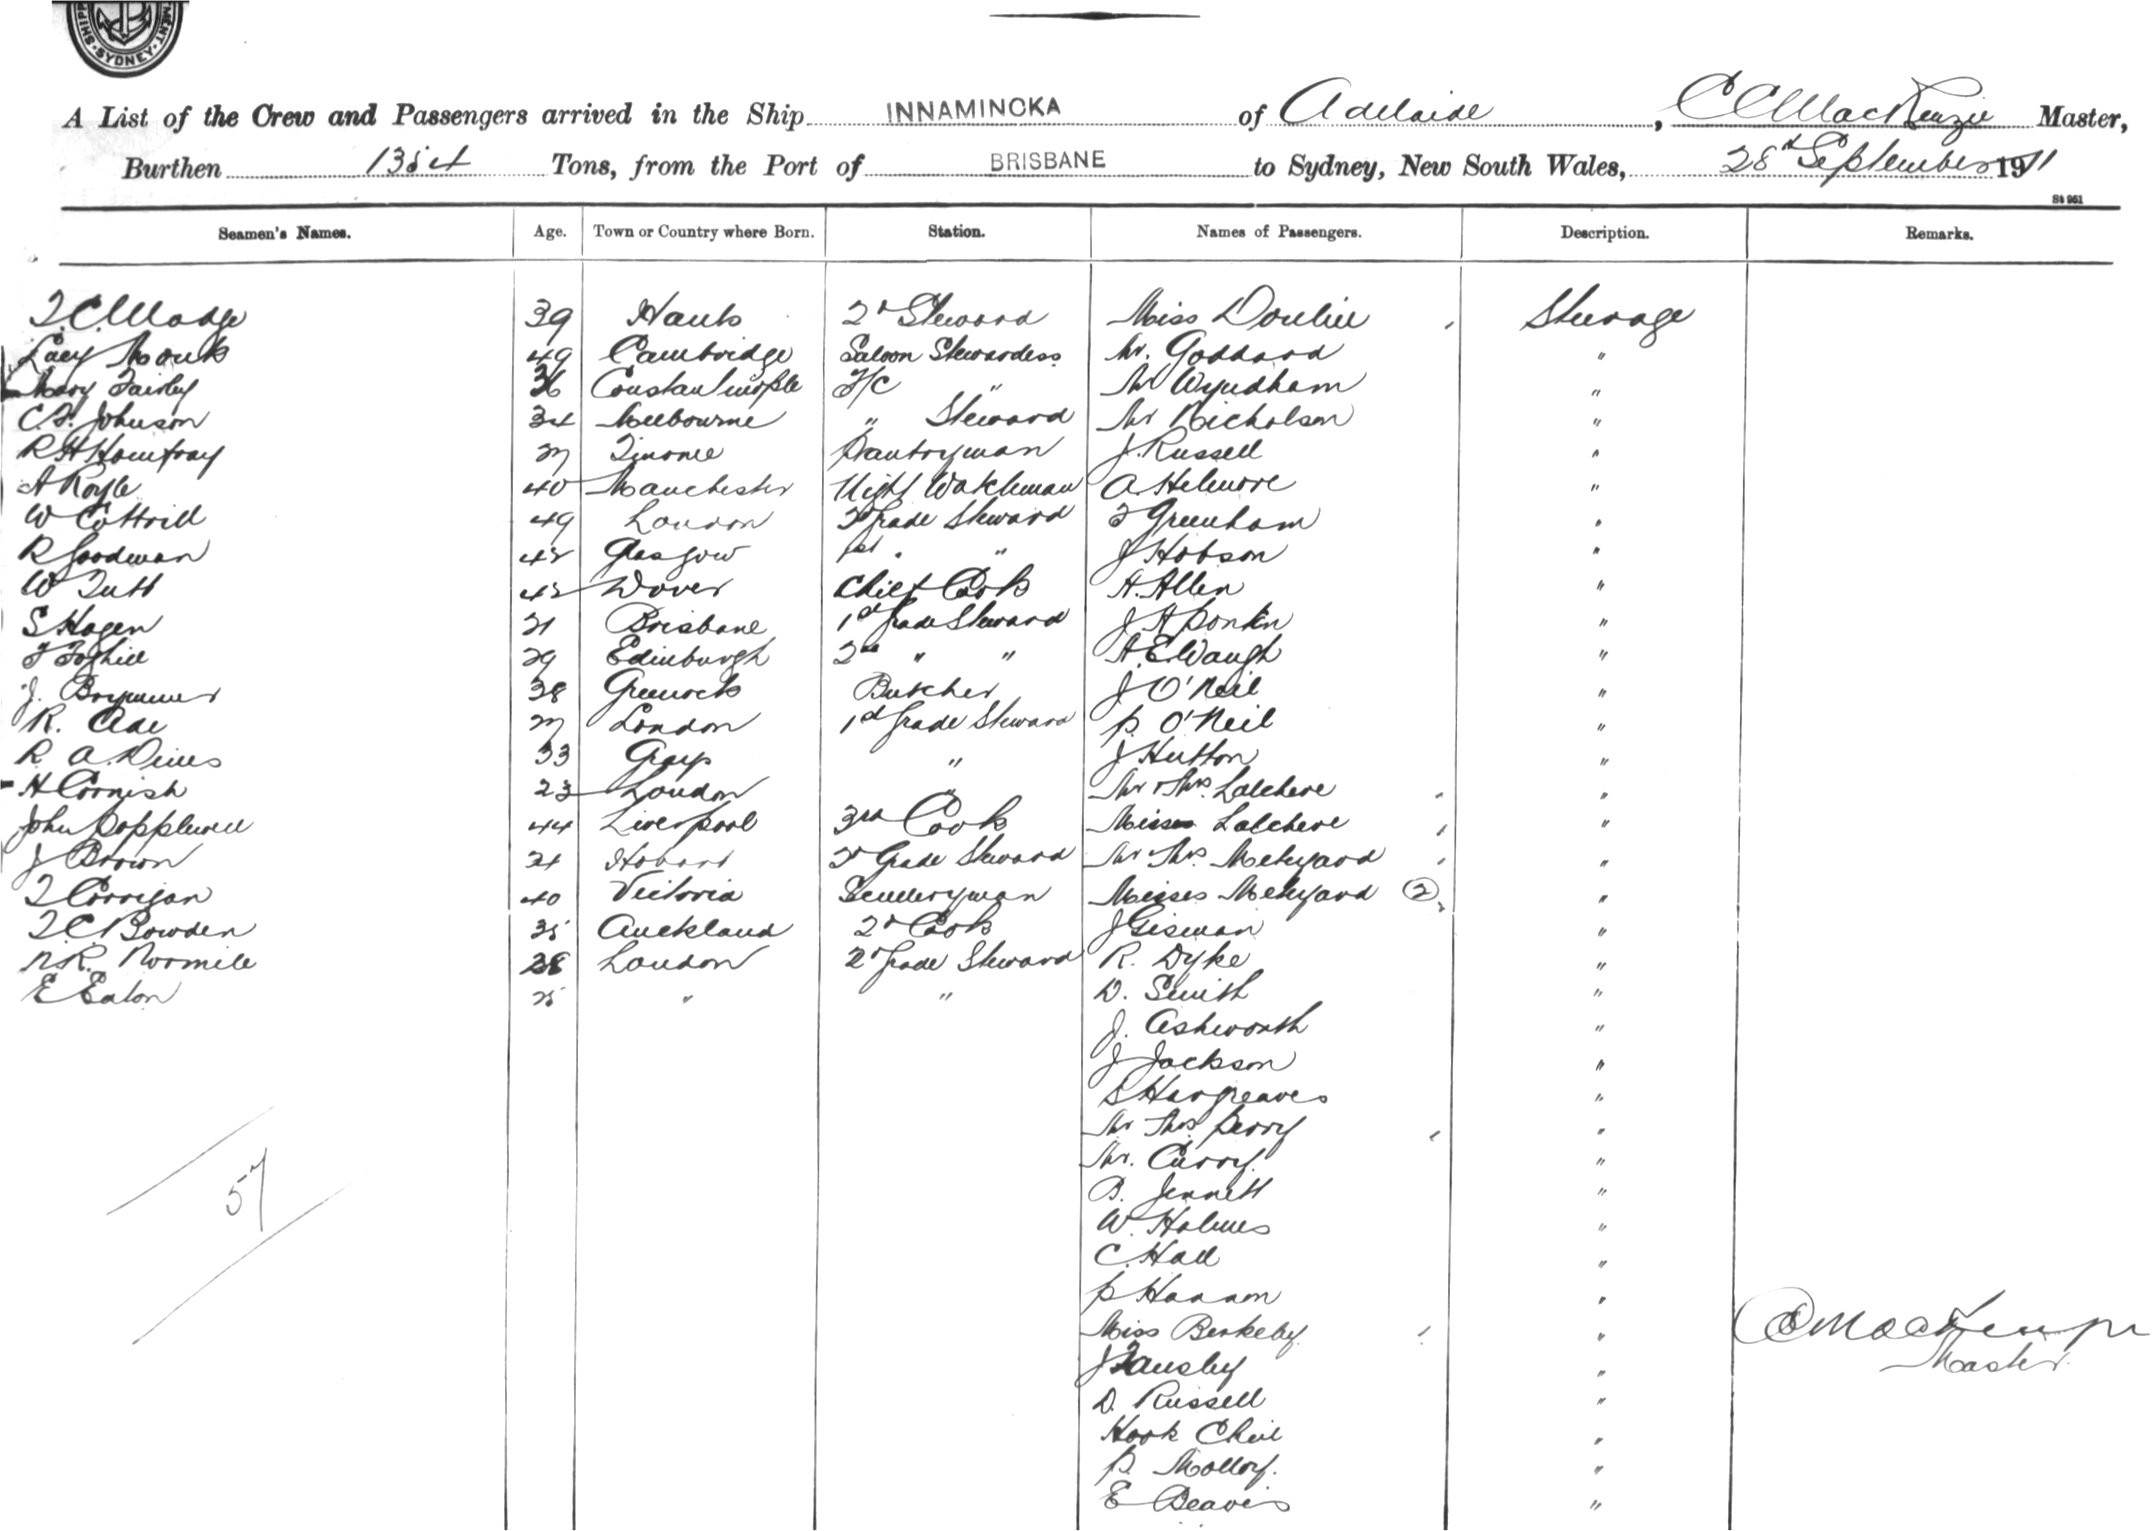 SHIPP MENT SYDNEY
A List of the Crew and Passengers arrived in the Ship INNAMINCKA of Adelaide, C C MacKenzie Master,
Burthen Tons, from the Port of BRISBANE to Sydney, New South Wales, 28th September 1911
St 961
Seamen's Names. Age. Town or Country where Born. Station. Names of Passengers. Description. Remarks.
T. C. Madge 39 Hants 2d Steward Miss Steerage
49 Cambridge Saloon Stewardess Mr. Goddard "
Mary Fairley 36 Constantinople F/C " Mr Wyndham "
C. F. Johnson 34 Melbourne " Steward Mr Nicholson "
R H Homfray 27 Pantryman J. Russell "
A Royle 40 Manchester Night Watchman A. Helmore "
W Cottrill 49 London 2d Grade Steward T Greenham "
R Goodman 42 Glasgow 1st " " J Hobson "
W Tutt 42 Dover Chief Cook A. Allen "
S Hagen 21 Brisbane 1st Grade Steward J A Donkin "
T Foghill 29 Edinburgh 2nd " " A. E. Waugh "
J. 38 Greenock Butcher J O'Neil "
R. Ade 27 London 1st Grade Steward P. O'Neil "
R. A. Dines 33 Grays " J Hutton "
H Cornish 23 London " Mr & Mrs. Latchere "
John Popplewell 44 Liverpool 3rd Cook Misses Latchere "
J Brown 21 Hobart 2d Grade Steward Mr Mrs Metyard "
T Corrigan 40 Victoria Sculleryman Misses Metyard (2) "
T. C Bowden 35 Auckland 2d Cook J Gisman "
N. R. Normile 28 London 2d Grade Steward R. Dyke "
E Eaton 25 " " D. Smith "
J. Ashworth "
J Jackson "
S Hargreaves "
Mr Mrs. Perry "
Mr. Curry. "
B. Jennett "
W. Holmes "
C. Hall "
P Hannon "
57
Miss Berkeley "
C C MacKenzie
J Tansley "
Master.
D. Russell "
Hook "
P. Molloy. "
E Beavis "